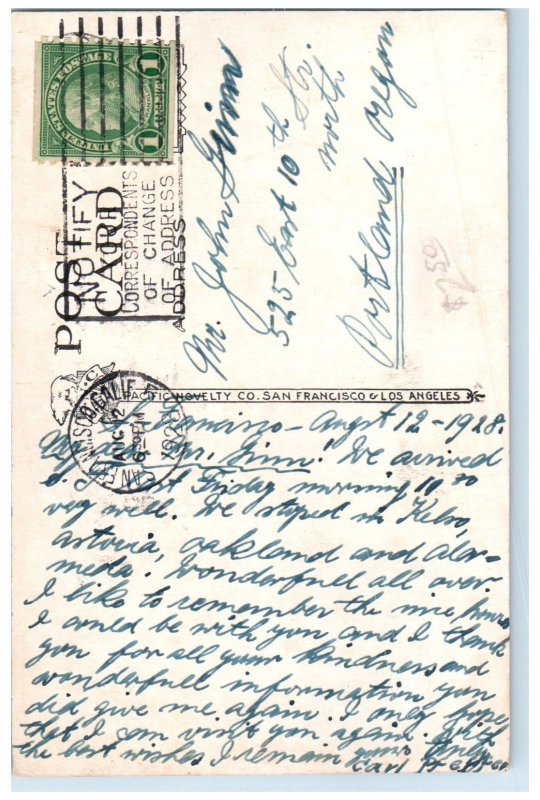 UNITED STATES POSTAGE
1 1
POST CARD
NOTIFY
CORRESPONDENTS
OF CHANGE
OF ADDRESS
ADDRESS
Mr. John Ginn
525 East 10th Str.
north
Portland Oregon
$2.50
PACIFIC NOVELTY CO. SAN FRANCISCO & LOS ANGELES
SAN FRANCISCO, CALIF.
AUG 12
1928
Augst 12-1928.
My dear Mr. Ginn! We arrived
last Friday morning 11 30
very well. We stoped in Kelso,
Astoria, Oakland and Ala-
meda. Wonderfull all over
I like to remember the nice hours
I could be with you and I thank
you for all your kindness and
wonderfull information you
did give me again. I only hope
that I can visit you again. With
the best wishes I remain yours truly
Carl